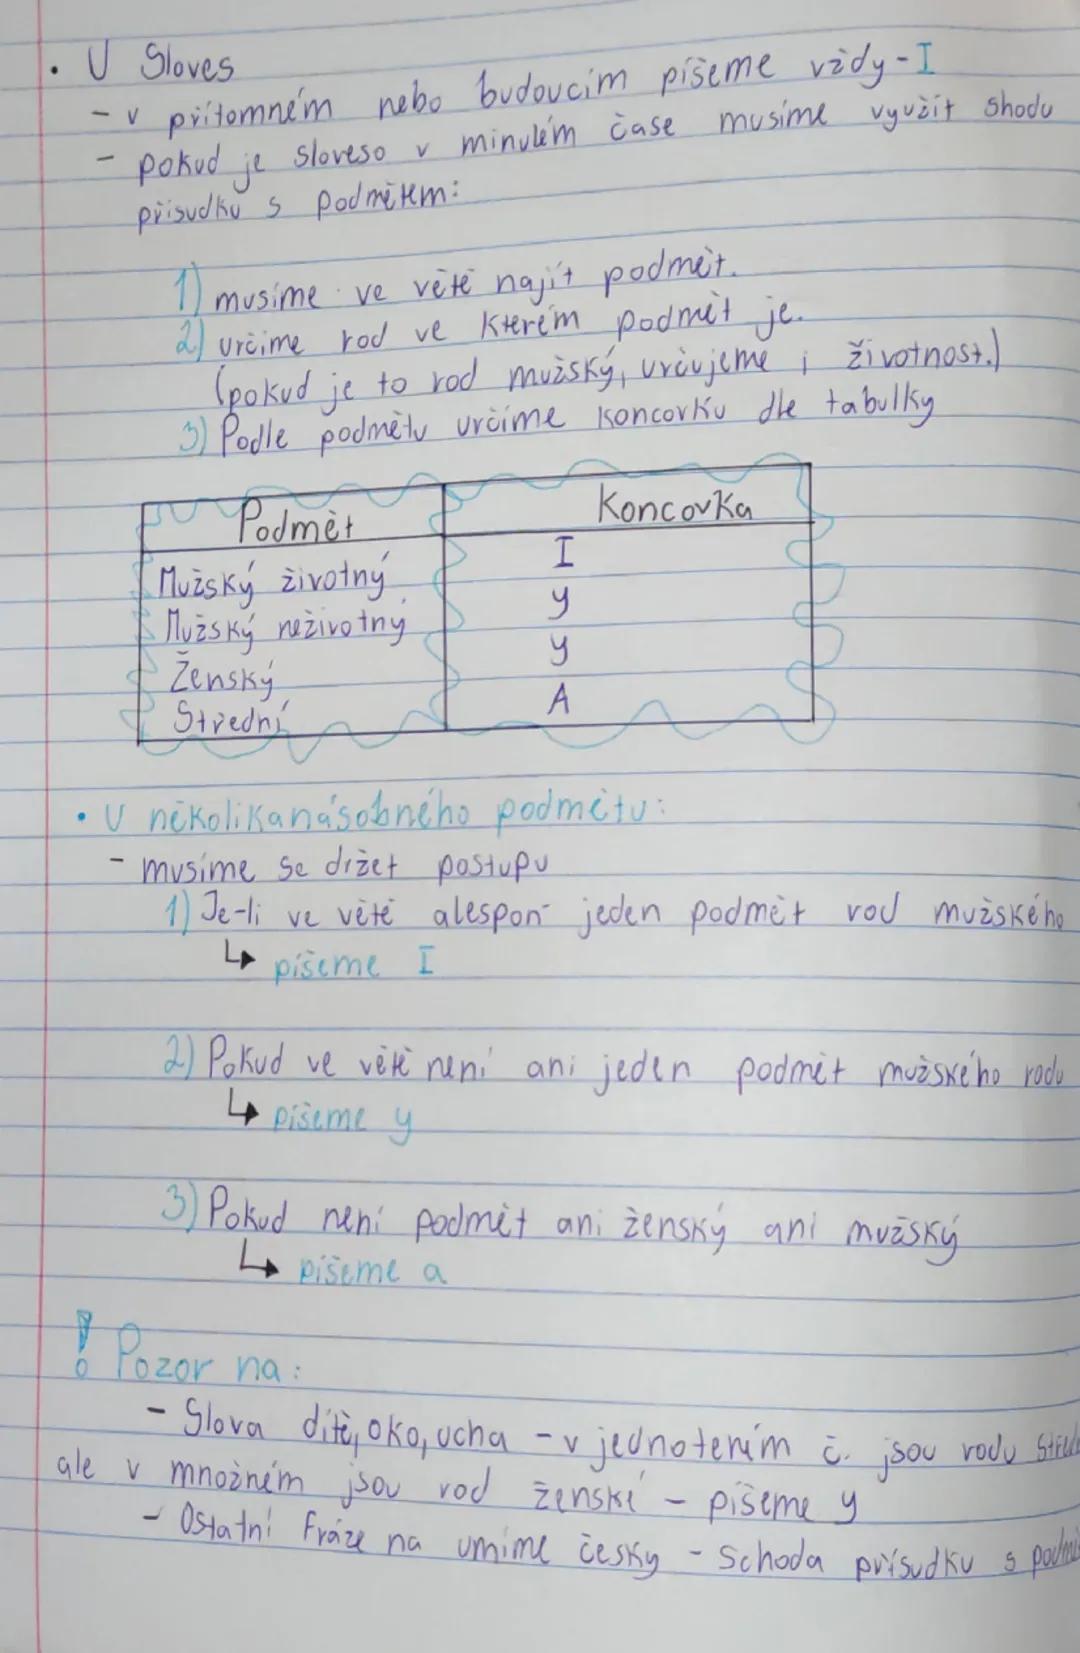 • U Sloves
- v přítomném nebo budoucím píšeme vždy - I
- pokud je sloveso v minulém čase musíme využít shodu
přísudku s podmětem:
1) musíme ve větě najít podmět.
2) určíme rod ve kterém podmět je.
(pokud je to rod mužský, určujeme i životnost.)
3) Podle podmětu určíme koncovku dle tabulky
Podmět Koncovka
Mužský životný I
Mužský neživotný y
Ženský y
Střední A
• U několikanásobného podmětu:
- musíme se držet postupu
1) Je-li ve větě alespoň jeden podmět rod mužského
↳ píšeme I
2) Pokud ve větě není ani jeden podmět mužského rodu
↳ píšeme y
3) Pokud není podmět ani ženský ani mužský
↳ píšeme a
! Pozor na:
- Slova dítě, oko, ucha - v jednotením č. jsou rodu
ale v množném jsou rod ženské - píšeme y
- Ostatní Fráze na umíme česky - Schoda přísudku s